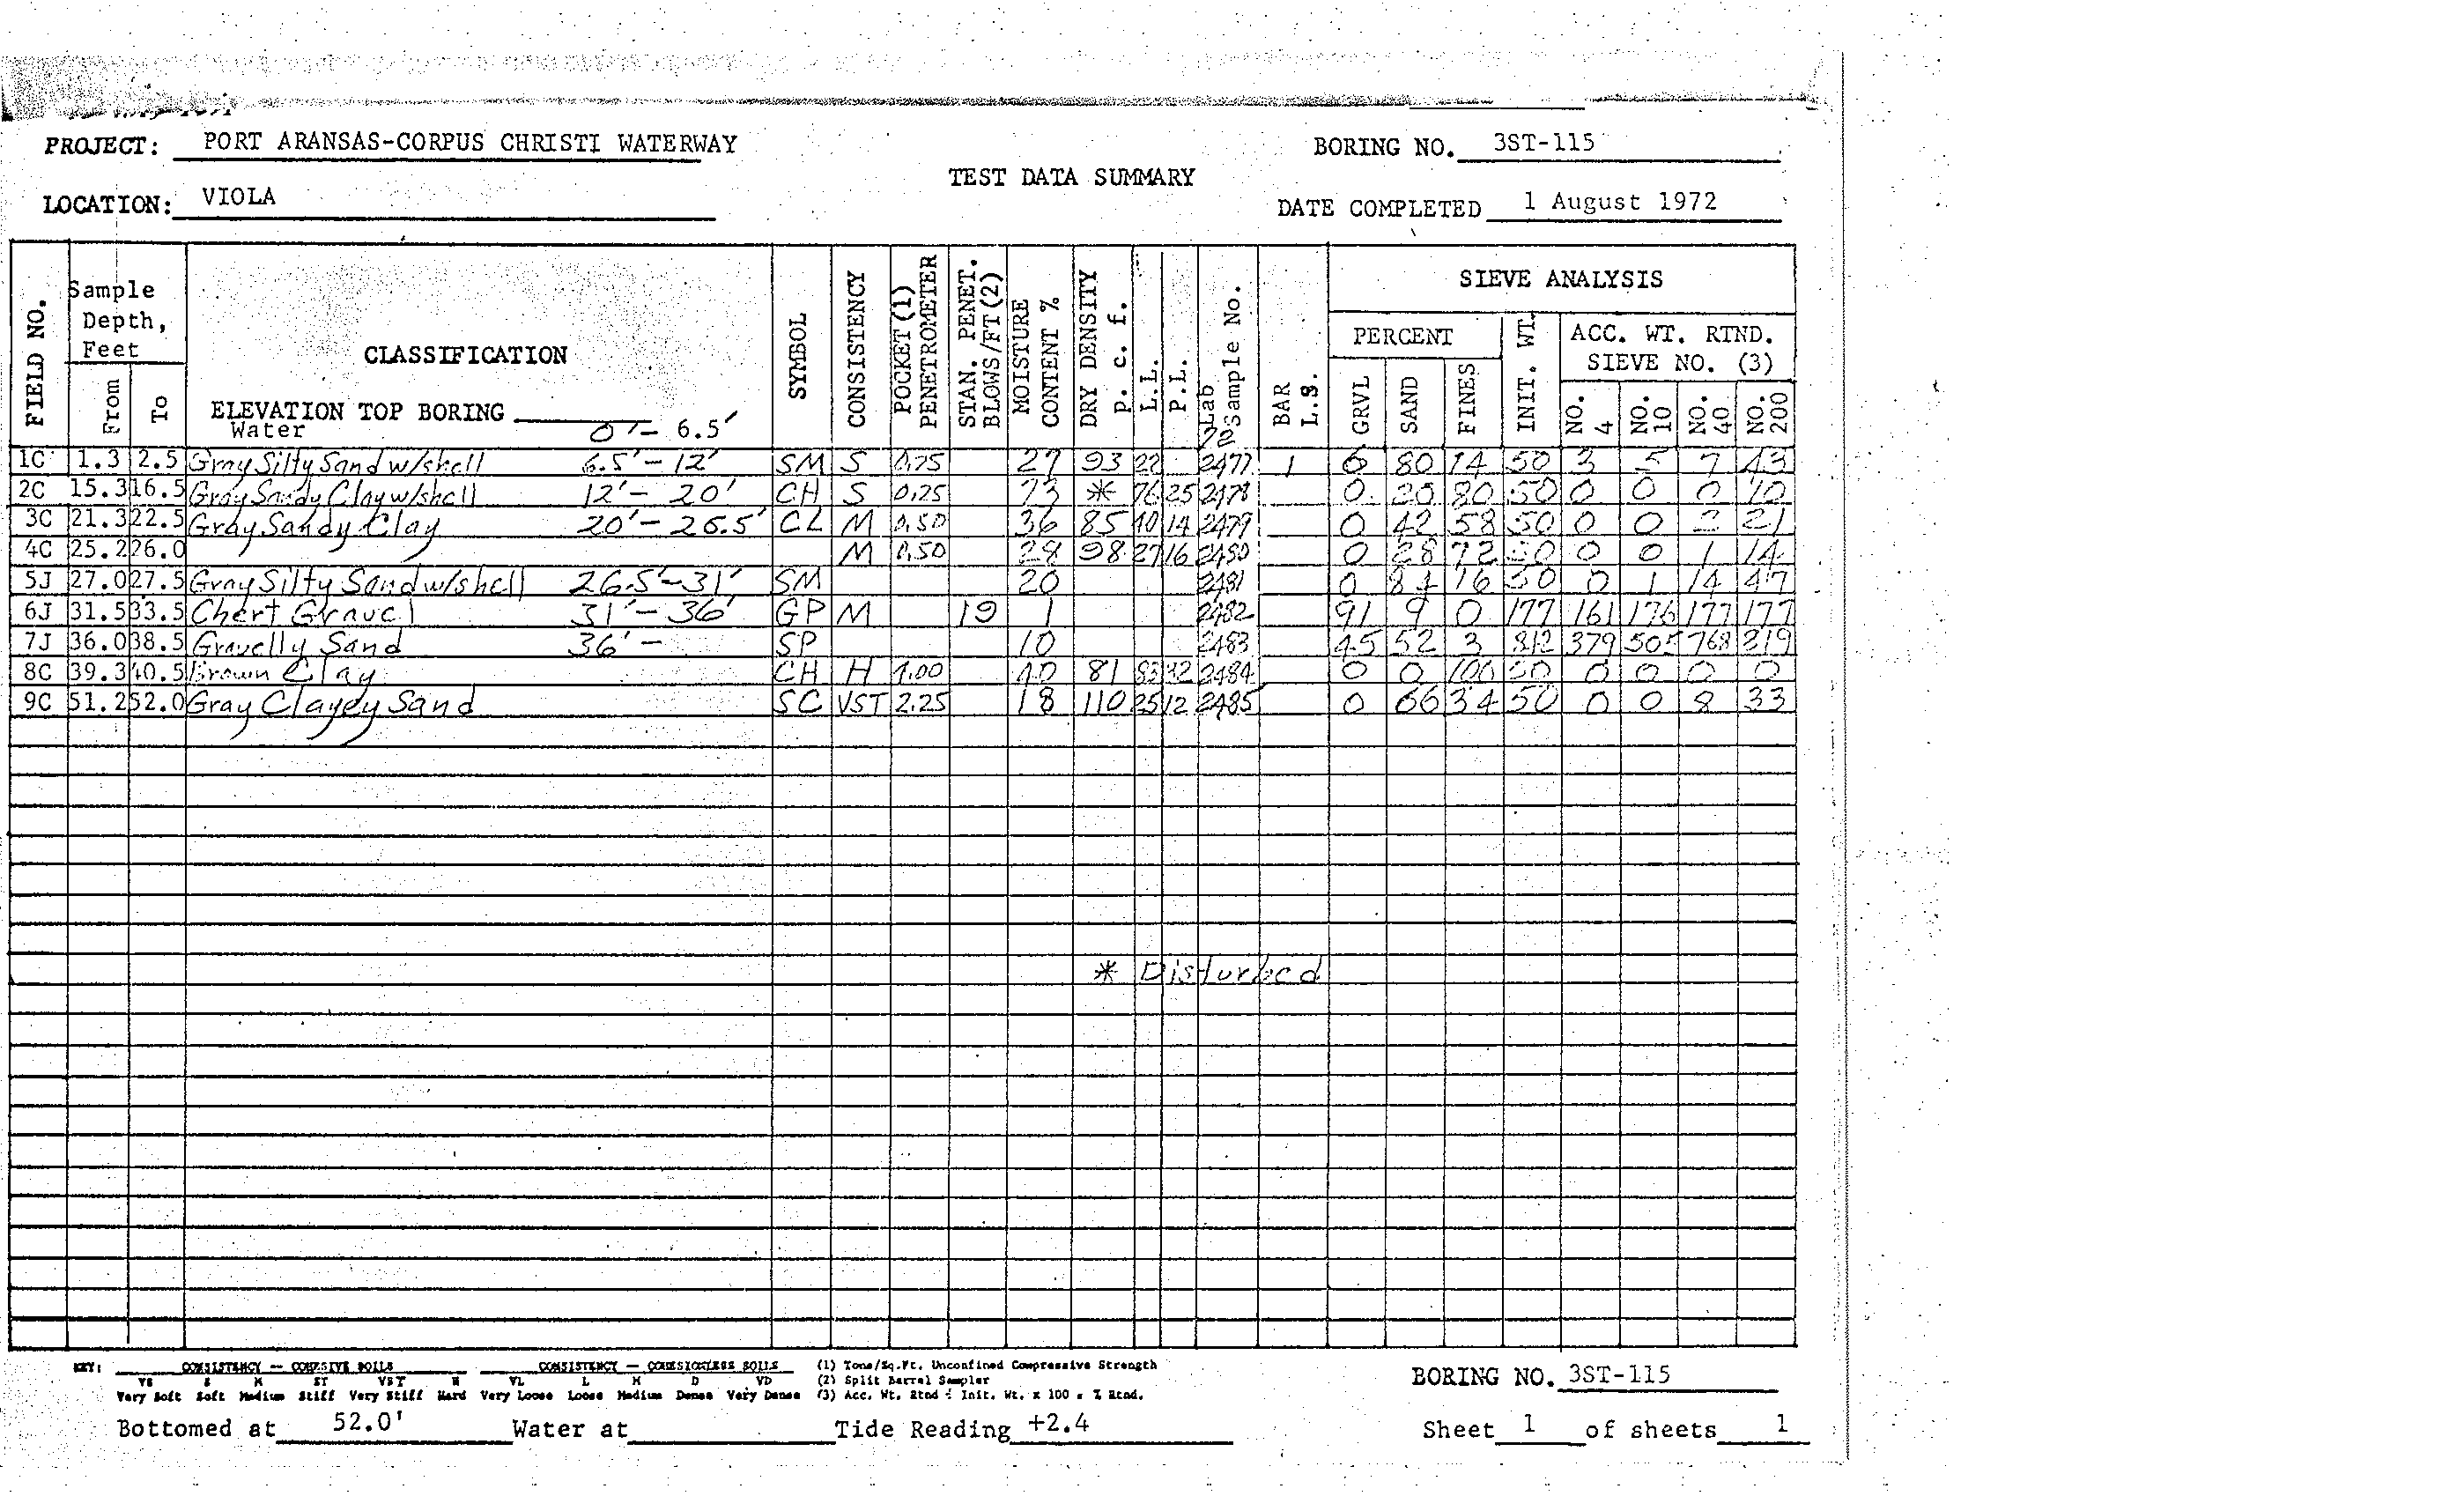 PROJECT: PORT ARANSAS-CORPUS CHRISTI WATERWAY
BORING NO. 3ST-115
TEST DATA SUMMARY
LOCATION: VIOLA
DATE COMPLETED 1 August 1972
FIELD NO.
Sample Depth, Feet
From
To
CLASSIFICATION
ELEVATION TOP BORING
Water 0'- 6.5'
SYMBOL
CONSISTENCY
POCKET (1) PENETROMETER
STAN. PENET. BLOWS/FT (2)
MOISTURE CONTENT %
DRY DENSITY p. c. f.
L.L.
P.L.
Lab Sample No.
72
BAR L.S.
SIEVE ANALYSIS
PERCENT
GRVL
SAND
FINES
INIT. WT.
ACC. WT. RTND.
SIEVE NO. (3)
NO. 4
NO. 10
NO. 40
NO. 200
1C 1.3 2.5 Gray Silty Sand w/shell 6.5'- 12' SM S 0.75 27 93 22 2477 1 6 80 14 50 3 5 7 43
2C 15.3 16.5 Gray Sandy Clay w/shell 12'- 20' CH S 0.25 73 * 76 25 2478 0 20 80 50 0 0 0 10
3C 21.3 22.5 Gray Sandy Clay 20'- 26.5' CL M 0.50 36 85 40 14 2479 0 42 58 50 0 0 2 21
4C 25.2 26.0 M 0.50 28 98 27 16 2480 0 28 72 50 0 0 1 14
5J 27.0 27.5 Gray Silty Sand w/shell 26.5'-31' SM 20 2481 0 84 16 50 0 1 14 47
6J 31.5 33.5 Chert Gravel 31'- 36' GP M 19 1 2482 91 9 0 177 161 176 177 177
7J 36.0 38.5 Gravelly Sand 36'- SP 10 2483 45 52 3 842 379 505 768 819
8C 39.3 40.5 Brown Clay CH H 4.00 40 81 83 32 2484 0 0 100 50 0 0 0 0
9C 51.2 52.0 Gray Clayey Sand SC VST 2.25 18 110 25 12 2485 0 66 34 50 0 0 8 33
* Disturbed
KEY: CONSISTENCY — COHESIVE SOILS CONSISTENCY — COHESIONLESS SOILS (1) Tons/Sq.Ft. Unconfined Compressive Strength
VS S M ST VST H VL L M D VD (2) Split Barrel Sampler
Very Soft Soft Medium Stiff Very Stiff Hard Very Loose Loose Medium Dense Very Dense (3) Acc. Wt. Rtnd ÷ Init. Wt. x 100 = % Rtnd.
BORING NO. 3ST-115
Bottomed at 52.0' Water at Tide Reading +2.4
Sheet 1 of sheets 1